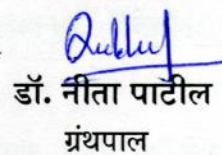 डॉ. नीता पाटील
ग्रंथपाल